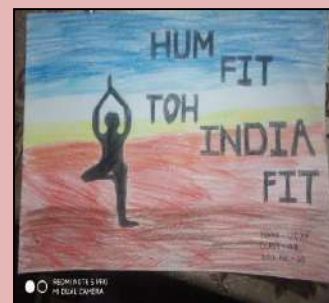 HUM
FIT
TOH
INDIA
FIT
REDMI NOTE 5 PRO
MI DUAL CAMERA